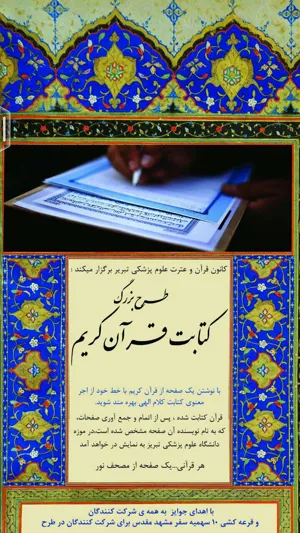 کانون قرآن و عترت علوم پزشکی تبریز برگزار میکند :
طرح بزرگ
کتابت قرآن کریم
با نوشتن یک صفحه از قرآن کریم با خط خود از اجر
معنوی کتابت کلام الهی بهره مند شوید.
قرآن کتابت شده ، پس از اتمام و جمع آوری صفحات،
که به نام نویسنده آن صفحه مشخص شده است،در موزه
دانشگاه علوم پزشکی تبریز به نمایش در خواهد آمد
هر قرآنی..یک صفحه از مصحف نور
با اهدای جوایز به همه ی شرکت کنندگان
و قرعه کشی ۱۰ سهمیه سفر مشهد مقدس برای شرکت کنندگان در طرح